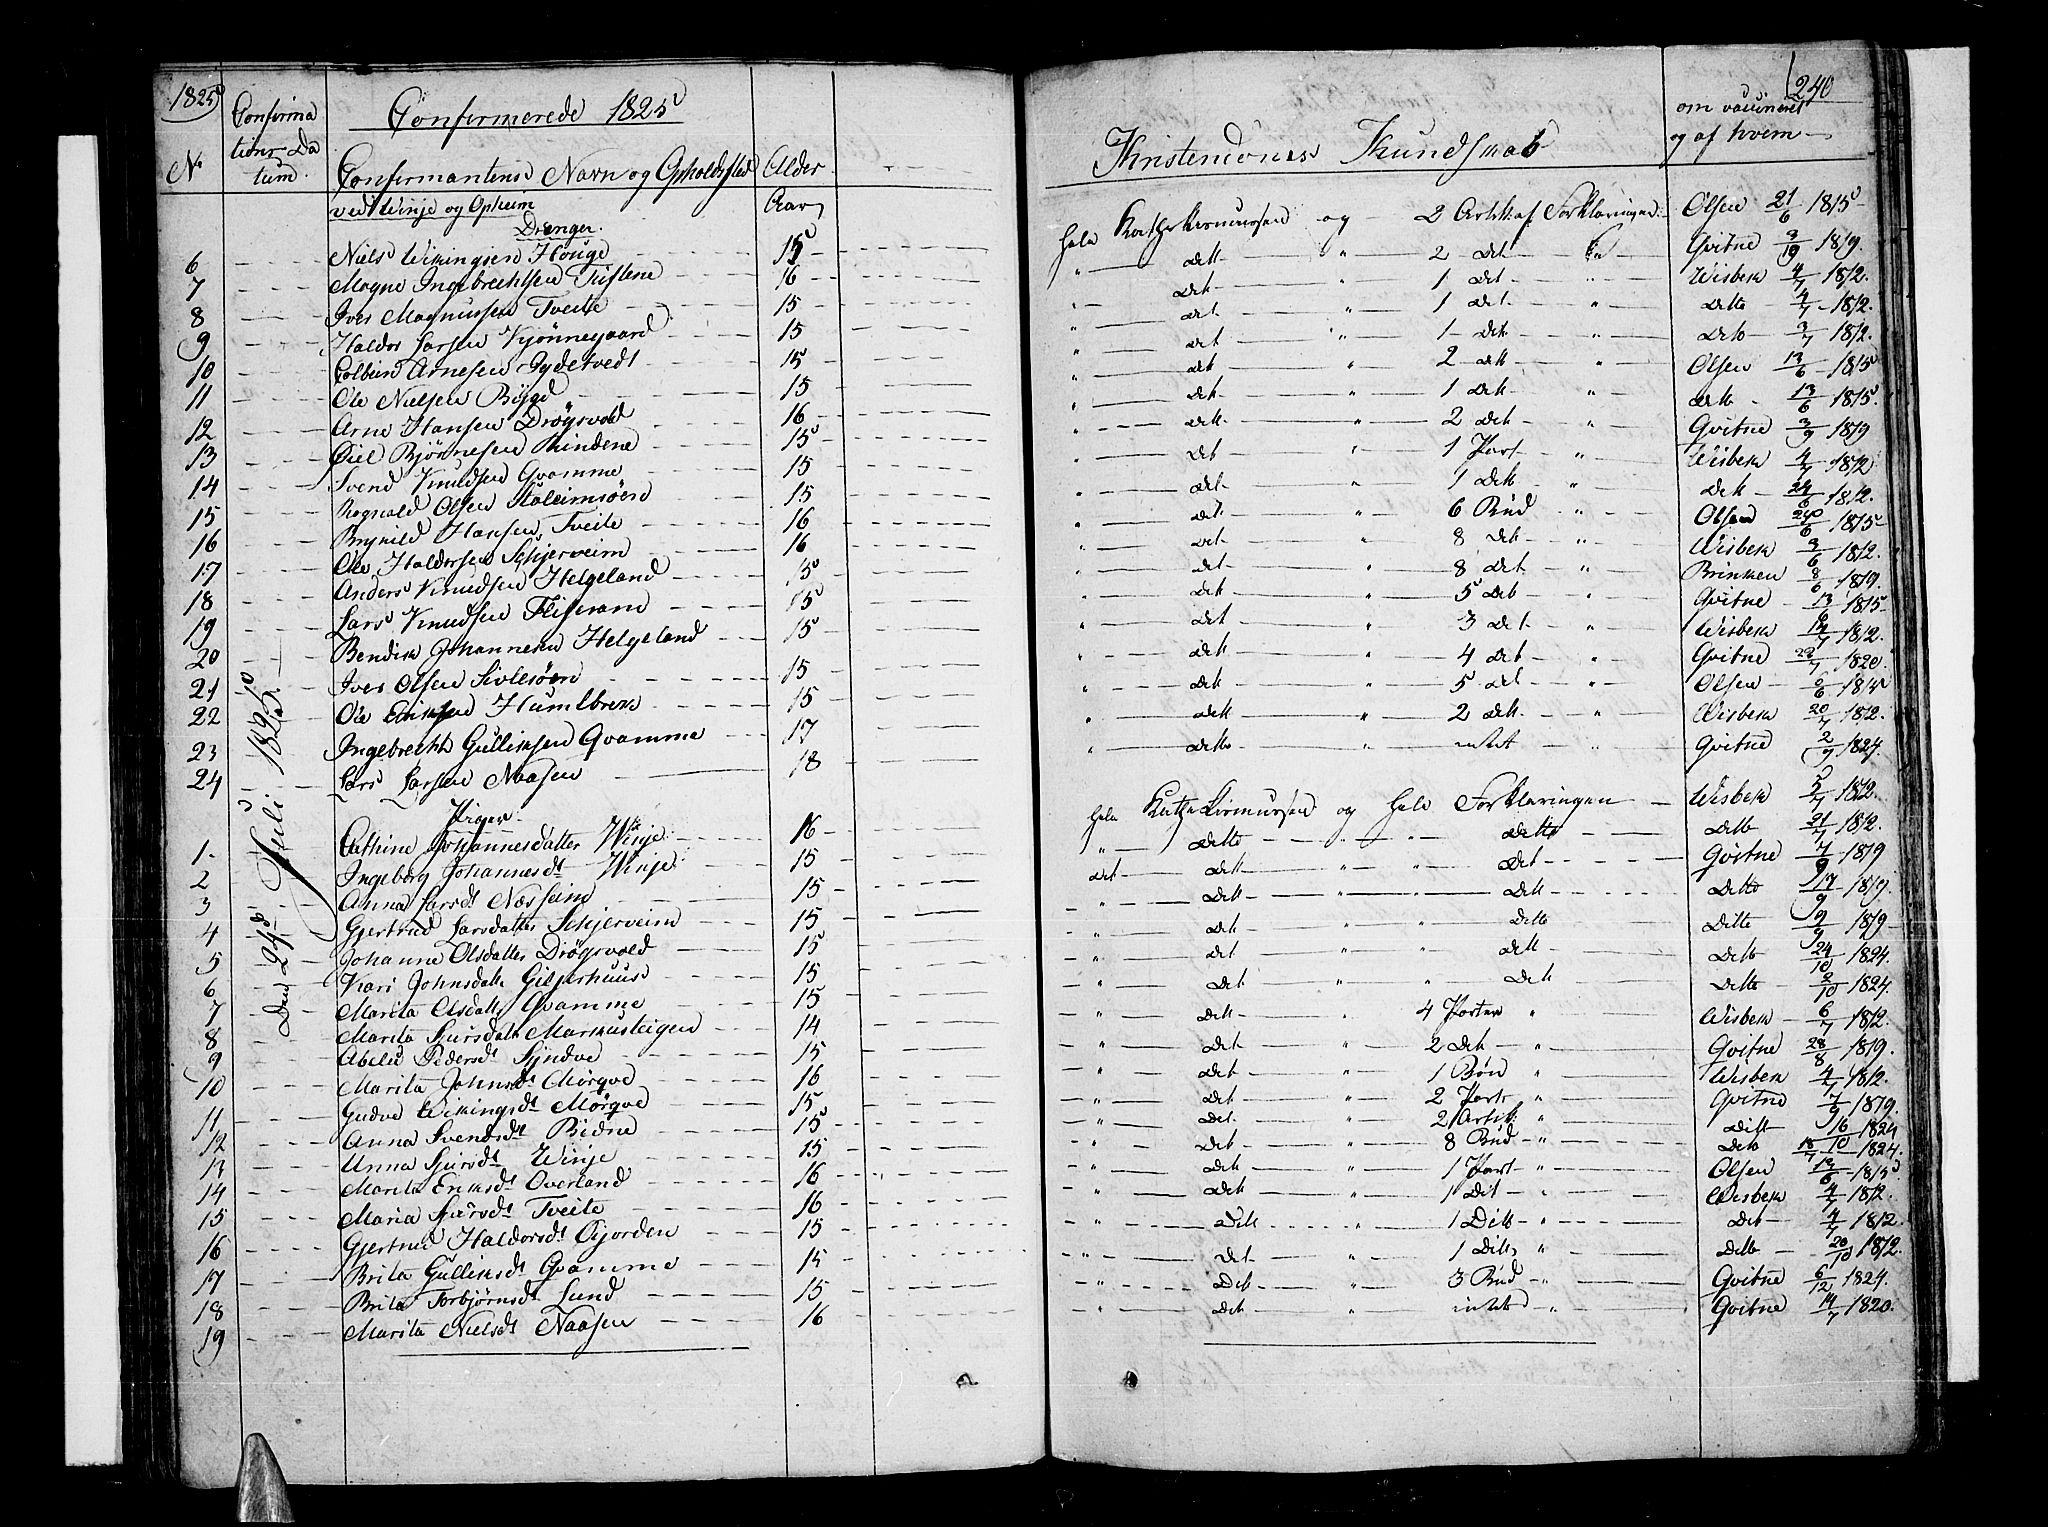 1825
Confirma
tions Da
tum.
No
Confirmerede 1825
Confirmantens Navn og Opholdssted Alder
ved Winje og Opheim Aar
Drenger.
6 Niels Wikingsen Houge 15
7 Magne Ingebrechtsen Tuftene 16
8 Iver Magnussen Tveite 15
9 Haldor Larsen Kjönnegaard 15
10 Colbein Arnesen Gydetvedt 15
11 Ole Nielsen Bÿgd 15
12 Arne Hansen Drögsvold 16
13 Öiel Björnesen Rindene 15
14 Svend Knudsen Qvamme 15
15 Rognald Olsen Staleimsöen 15
16 Brynild Hansen Tveite 16
17 Ole Haldorsen Schjerveim 16
18 Anders Knudsen Helgeland 15
19 Lars Knudsen Fliseram 15
20 Bendik Johannesen Helgeland 15
21 Iver Olsen Sivlesöen 15
22 Ole Eriksen Humlbrek 15
23 Ingebrecht Gulliksen Qvamme 17
24 Lars Larsen Naasen 18
Piger
1. Cathine Johannesdatter Winje 16
2 Ingeborg Johannesdt Winje 15
3 Anna Larsdt Næsheim 15
4 Gjertrud Larsdatter Schjerveim 15
5 Johanne Olsdatter Drögsvold 15
6 Kari Johnsdatt Giljarhuus 15
7 Marita Olsdatt Qvamme 15
8 Marita Sjursdatt Markusteigen 14
9 Abelu Pedersdt Sjndve 15
10 Marita Johnsdt Mörqve 16
11 Gudve Wikingsdt Mörqve 15
12 Anna Svendsdt Bidne 15
13 Unna Sjursdt Winje 15
14 Marita Eriksdt Overland 16
15 Maria Sjursdt Tveite 16
16 Gjertrud Haldorsdt Öijorden 15
17 Brita Gulliksdt Qvamme 15
18 Brita Torbjörnsdt Lund 15
19 Marita Nielsdt Naasen 16
Den 24de Juli 1825
240
Kristendoms Kundskab
om vaccineret
og af hvem
hele og 2 Artik af Forklaringen Olsen 21/6 1815
" dett " 2 det Qvitne 3/9 1819.
" det " 1 det " Wisbek 4/7 1812.
" det " 1 det " Dette 4/7 1812.
" det " 1 det " dett 3/7 1812.
" dett " 2 dett " Olsen 13/6 1815
" det " 1 det " dett 13/6 1815.
" dett " 2 det " Qvitne 3/9 1819
" det " 1 Part " Wisbek 4/7 1812
" det " 1 dett " Dett 24/6 1812.
" det " 6 Bud " Olsen 20/6 1815
" det " 8 det " Wisbek 3/6 1812.
" det " 8 det " Brinken 8/6 1819.
" dett " 5 det " Qvitne 13/6 1815
" det " 3 det " Wisbek 14/7 1812.
" dett " 4 det " Qvitne 23/7 1820.
" dett " 5 det " Olsen 6/6 1815
" dett " 2 dett " Wisbek 20/7 1812.
" dette " intet " Qvitne 2/9 1824.
hele og hele Forklaringen Wisbek 5/7 1812.
" dette " " dette dette 21/7 1812.
det dett " " det Qvitne 7/9 1819
" dett " " dett dette 17/9 1819.
" det " " dette Dette 9/9 1819
" det " " dett Dett 24/10 1824.
" det " " dett dette 2/10 1824.
" dett " 4 Parter " Wisbek 6/7 1812.
" det " 2 det " Qvitne 28/8 1819.
" det " 1 Bön " Wisbek 4/7 1812.
" det " 2 Part " Qvitne 7/9 1819.
" det " 2 Artik " Ditt 16/10 1824
" det " 8 Bud " Dett 1824.
" dett " 1 Part " Olsen 13/6 1815
" dett " 1 Dit " Wisbek 4/7 1812.
" Dett " 1 Ditt " Det 4/7 1812.
" det " 1 Ditt " Dette 20/10 1812.
" Dett " 3 Bud " Qvitne 6/12 1824.
" det " intet " Qvitne 14/7 1820.